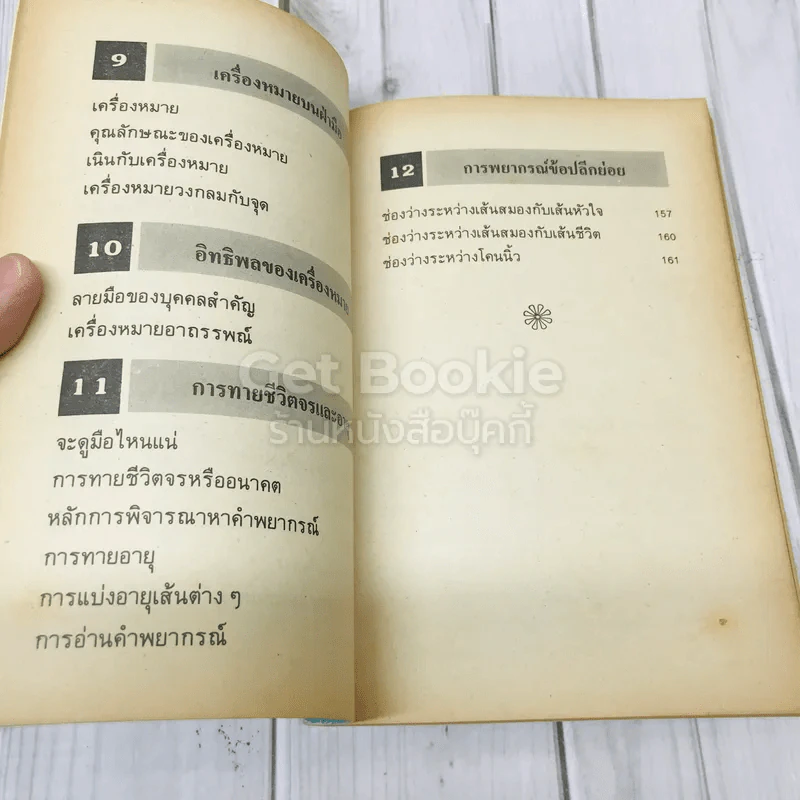 9 เครื่องหมายบนฝ่ามือ
เครื่องหมาย
คุณลักษณะของเครื่องหมาย
เนินกับเครื่องหมาย
เครื่องหมายวงกลมกับจุด
10 อิทธิพลของเครื่องหมาย
ลายมือของบุคคลสำคัญ
เครื่องหมายอาถรรพณ์
11 การทายชีวิตจรและ
จะดูมือไหนแน่
การทายชีวิตจรหรืออนาคต
หลักการพิจารณาหาคำพยากรณ์
การทายอายุ
การแบ่งอายุเส้นต่าง ๆ
การอ่านคำพยากรณ์
12 การพยากรณ์ข้อปลีกย่อย
ช่องว่างระหว่างเส้นสมองกับเส้นหัวใจ 157
ช่องว่างระหว่างเส้นสมองกับเส้นชีวิต 160
ช่องว่างระหว่างโคนนิ้ว 161
Get Bookie
ร้านหนังสือบุ๊คกี้